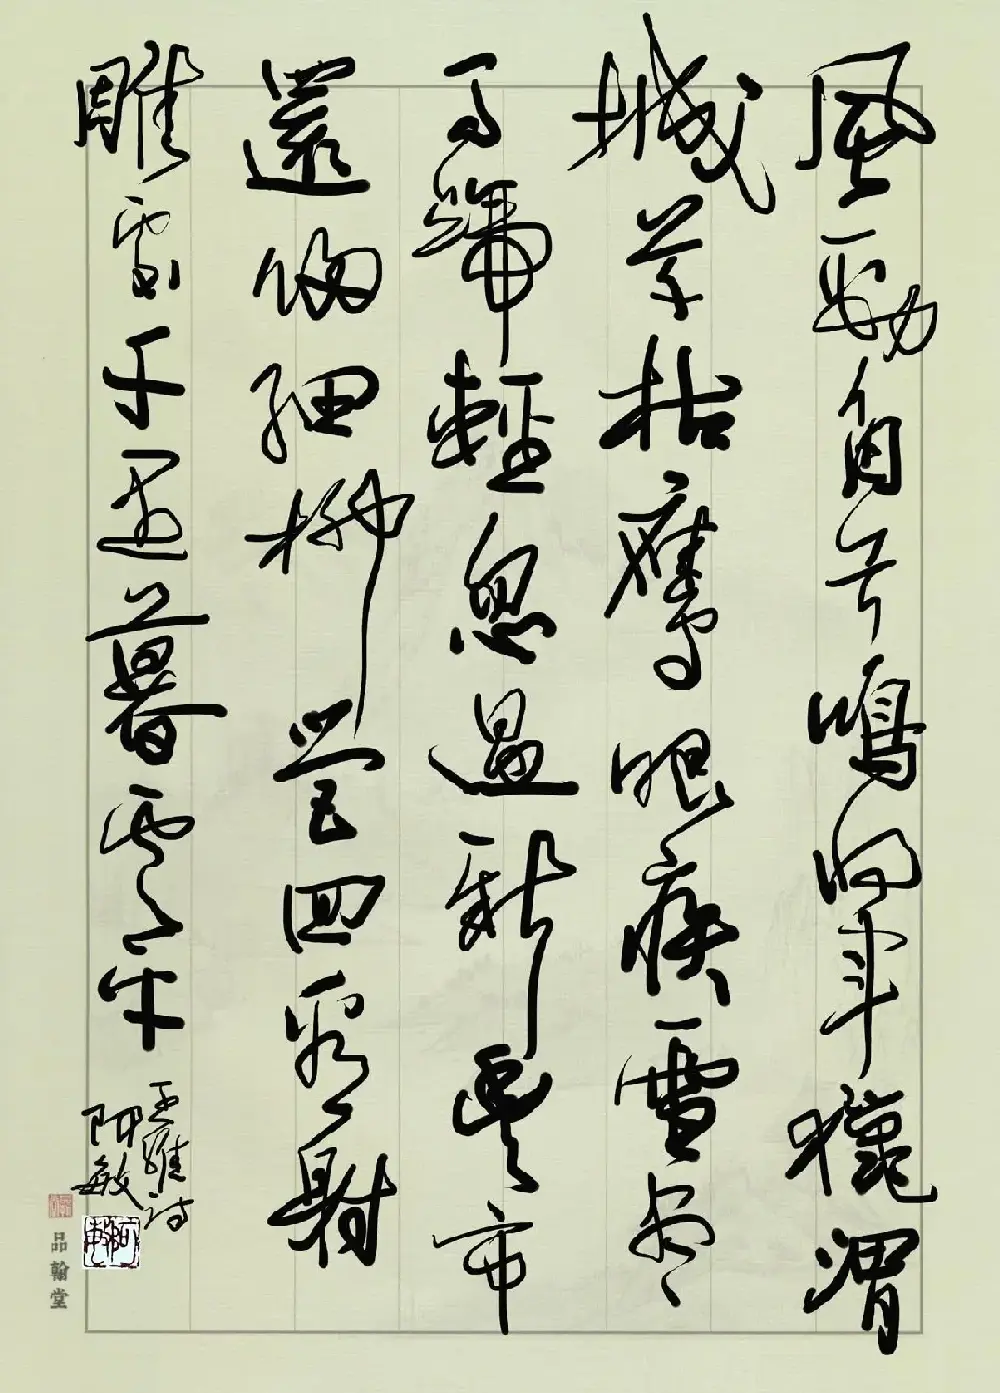 風勁角弓鳴將軍獵渭
城草枯鷹眼疾雪盡
馬蹄輕忽過新豐市
還歸細柳營回看射
雕處千里暮雲平
王維詩
阿敏
品翰堂